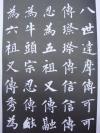 八世達摩傳可可
傳璨璨傳信信傳
忍為五祖又傳融
為牛頭宗忍傳能
為六祖又傳秀為